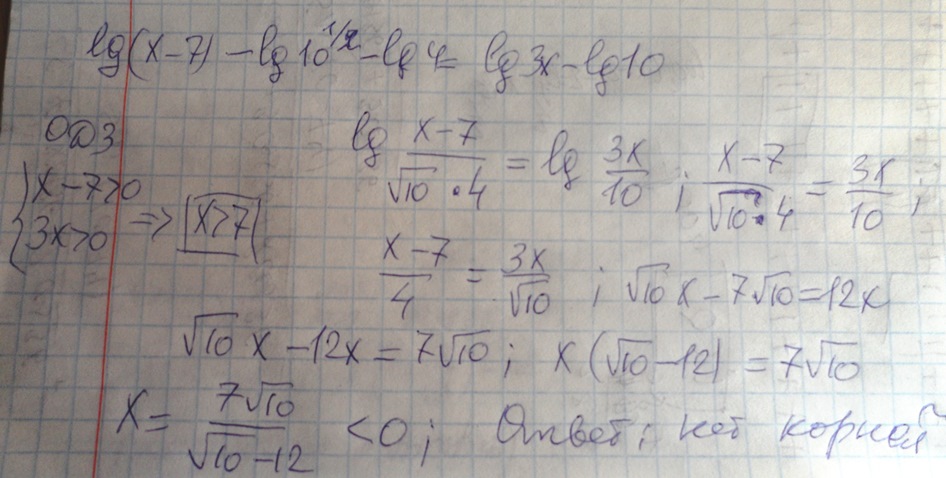 lg(x-7) - lg 10^1/2 - lg 4 = lg 3x - lg 10
ОДЗ
{ x-7>0
3x>0 => x>7
lg (x-7)/(√10 · 4) = lg 3x/10 ; (x-7)/(√10 · 4) = 3x/10 ;
(x-7)/4 = 3x/√10 ; √10 x - 7√10 = 12x
√10 x - 12x = 7√10 ; x(√10 - 12) = 7√10
x = 7√10/(√10-12) < 0 ; Ответ: нет корней